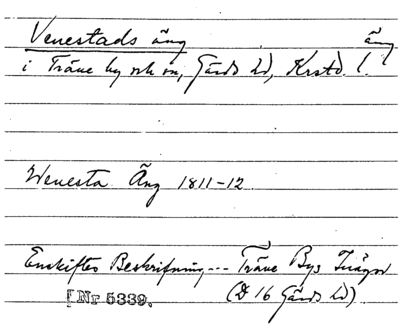 Venestads äng äng
i Träne by och sn, Gärds hd, Krstd l.
Wenesta Äng 1811-12
Enskiftes Beskrifning --- Träne Bys Inägor
[Nr 5339. (D 16 Gärds hd)